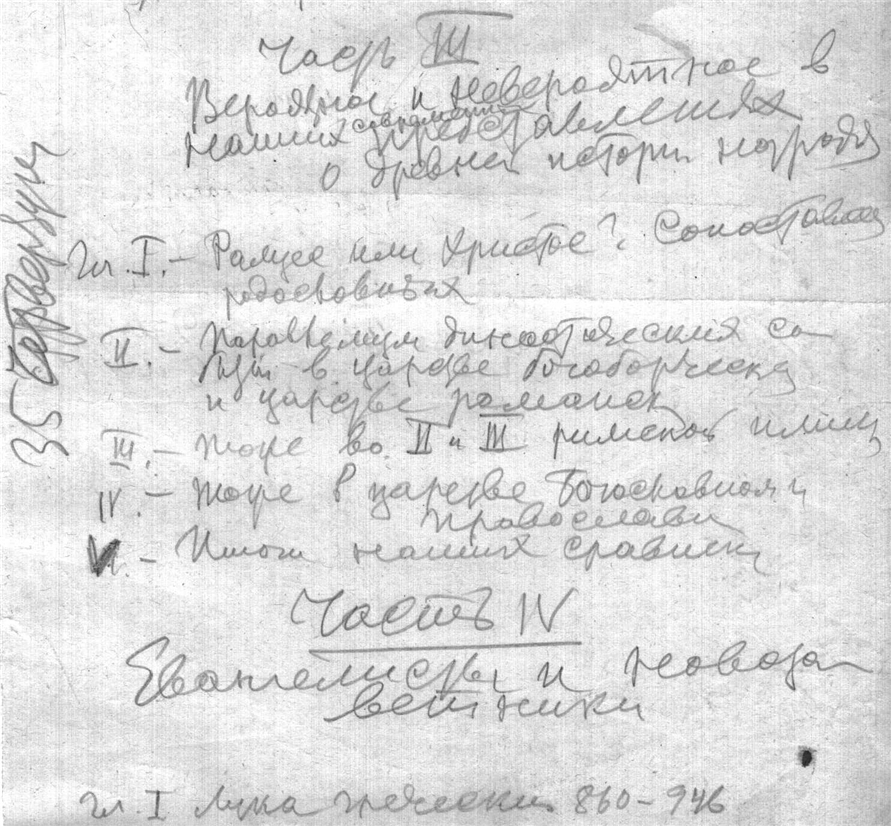 Часть III
Вероятное и невероятное в
наших современных представлениях
о древней истории народов
Гл. I. – Рамзес или Христос? Сопоставление
родословных
II. – Параллелизм династический со
бытий в царстве богоборческом
и царстве романск
III. – Тоже во II и III римской импер
IV. – Тоже в царстве Богославном и
православн
V. – Итоги наших сравнений
Часть IV
Евангелисты и новоза
ветники
Гл. I Лука 860–946
35